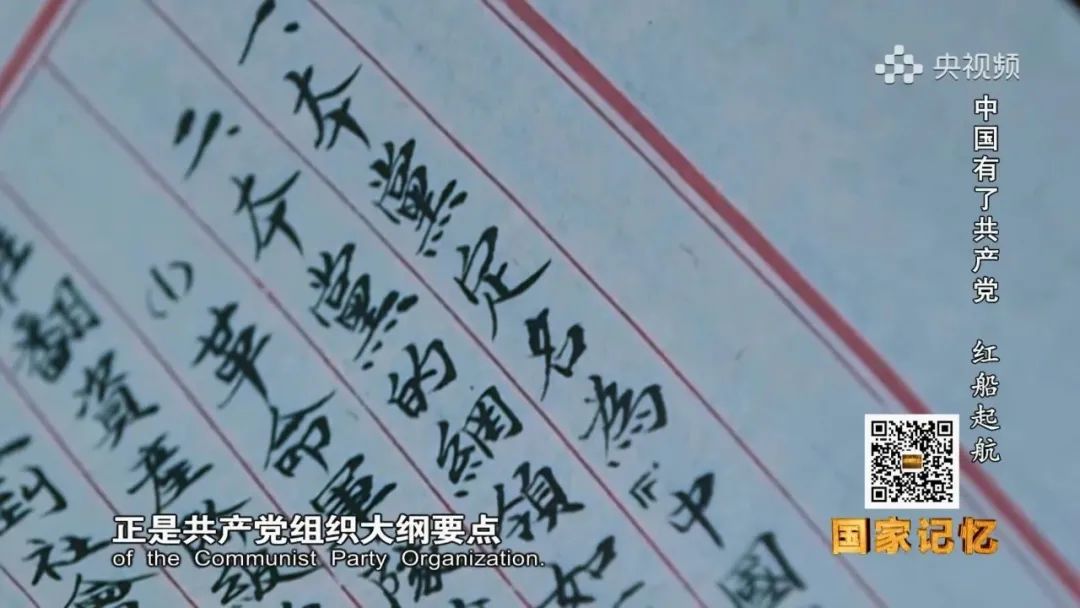 央视频
中国有了共产党 红船起航
一、本黨定名為“中國
二、本黨的綱領如
(1)革命軍
翻資產階級
到社會
正是共产党组织大纲要点
of the Communist Party Organization.
国家记忆